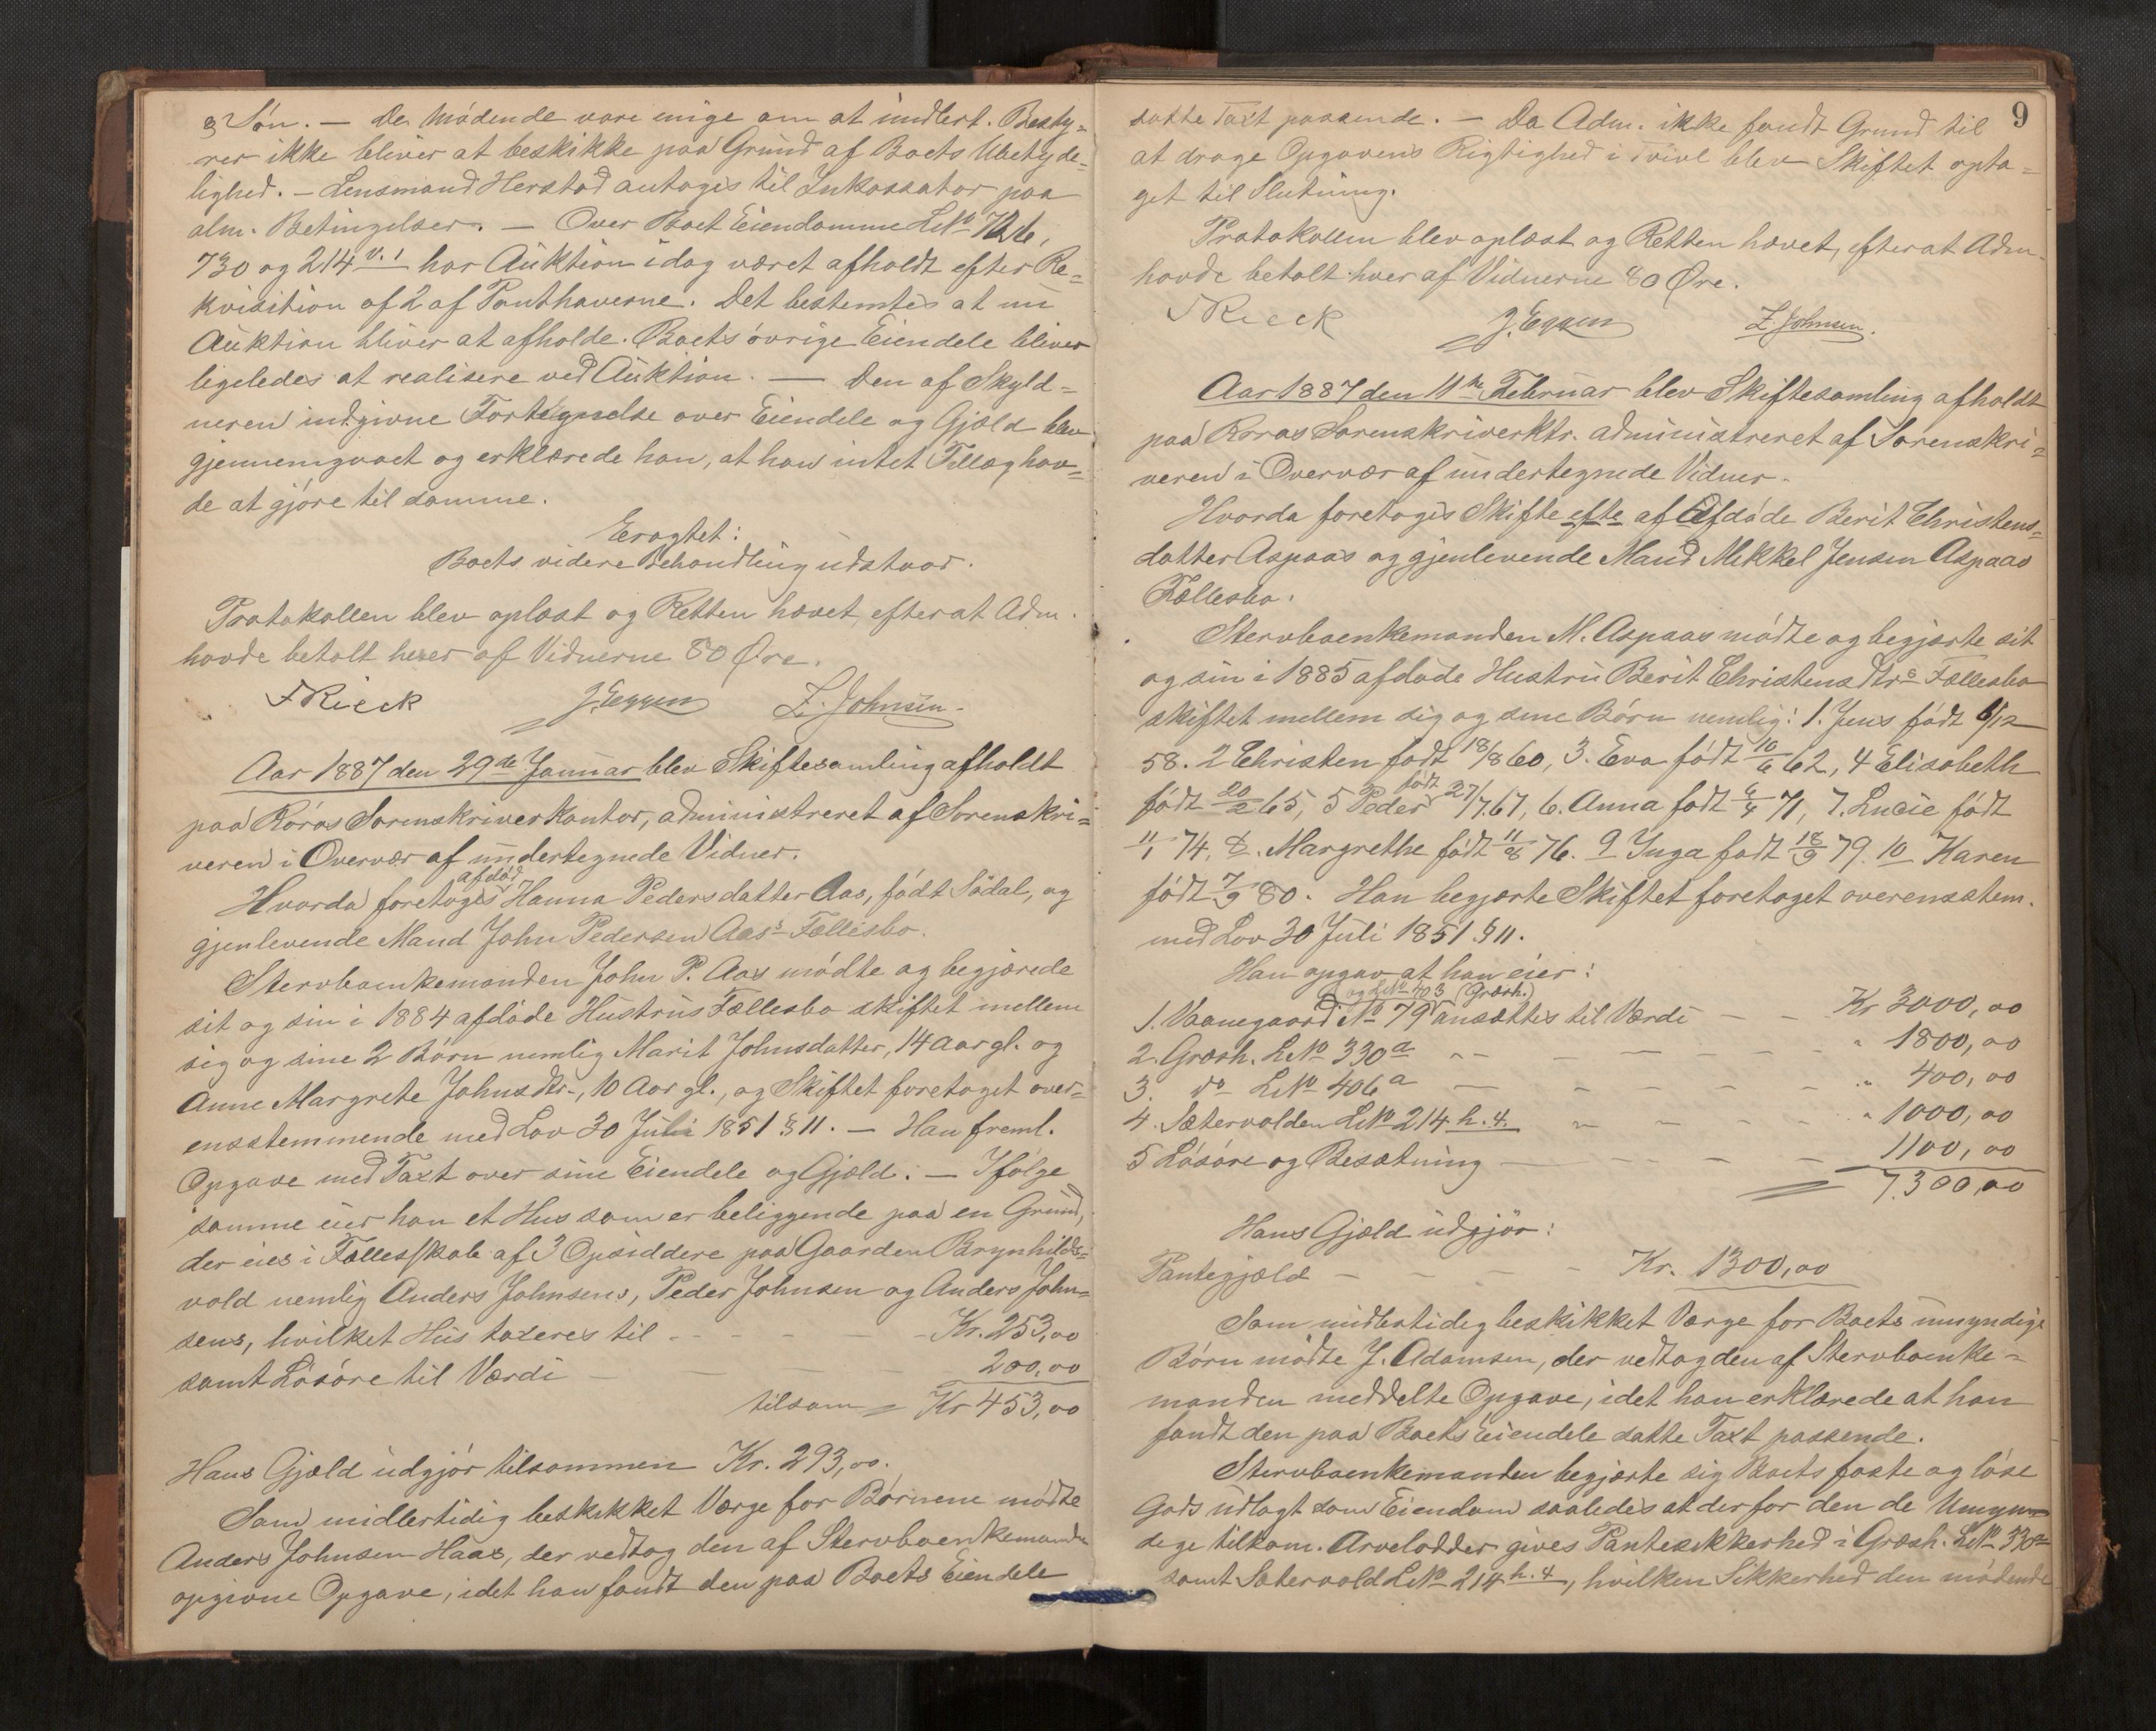 Søn. — De Mødende vare enige om at midlert. Besty-
rer ikke bliver at beskikke paa Grund af Boets Ubetyde-
lighed. — Lensmand Herstad antages til Inkassator paa
alm. Betingelser. — Over Boet Eiendomme LNo 726,
730 og 214 v. 1 har Auktion idag været afholdt efter Re-
kvisition af 2 af Panthaverne. Det bestemtes at ny
Auktion bliver at afholde. Boets øvrige Eiendele bliver
ligeledes at realisere ved Auktion. — Den af Skyld-
neren indgivne Fortegnelse over Eiendele og Gjæld blev
gjennemgaaet og erklærede han, at han intet Tillæg hav-
de at gjøre til samme.
Eragtet:
Boets videre Behandling udstaar.
Protokollen blev oplæst og Retten hævet, efterat Adm.
havde betalt hver af Vidnerne 80 Øre.
F Rieck J. Eggen Z. Johnsen.
Aar 1887 den 29de Januar blev Skiftesamling afholdt
paa Røros Sorenskriverkontor, administreret af Sorenskri-
veren i Overvær af undertegnede Vidner.
Hvorda foretages afdød Hanna Pedersdatter Aas, født Sødal, og
gjenlevende Mand John Pedersen Aas's Fællesbo.
Stervboenkemanden John P. Aas mødte og begjærede
sit og sin i 1884 afdøde Hustrus Fællesbo skiftet mellem
sig og sine 2 Børn nemlig Marit Johnsdatter, 14 aar gl. og
Anne Margrete Johnsdtr., 10 Aar gl., og Skiftet foretaget over-
ensstemmende med Lov 30 Juli 1851 § 11. — Han freml.
Opgave med Taxt over sine Eiendele og Gjæld. — Ifølge
samme eier han et Hus som er beliggende paa en Grund,
der eies i Fællesskab af 3 Opsiddere paa Gaarden Brynhilds-
vold nemlig Anders Johnsens, Peder Johnsen og Anders John-
sens, hvilket Hus taxeres til - - - Kr. 253,00
samt Løsøre til Værdi — — 200,00
tilsam = Kr 453,00
Hans Gjæld udgjør tilsammen Kr. 293,00.
Som midlertidig beskikket Værge for Børnene mødte
Anders Johnsen Haas, der vedtog den af Stervboenkemanden
opgivne Opgave, idet han fandt den paa Boets Eiendele
9
satte Taxt passende. — Da Adm. ikke fandt Grund til
at drage Opgavens Rigtighed i Tvivl blev Skiftet opta-
get til Slutning.
Protokollen blev oplæst og Retten hævet, efterat Adm.
havde betalt hver af Vidnerne 80 Øre.
F Rieck J. Eggen Z. Johnsen.
Aar 1887 den 11te Februar blev Skiftesamling afholdt
paa Røros Sorenskriverktr. administreret af Sorenskri-
veren i Overvær af undertegnede Vidner.
Hvorda foretages Skifte efte af Afdøde Berit Christens-
datter Aspaas og gjenlevende Mand Mikkel Jensen Aspaas
Fællesbo.
Stervboenkemanden M. Aspaas mødte og begjærte sit
og sin i 1885 afdøde Hustru Berit Christensdtrs Fællesbo
skiftet mellem sig og sine Børn nemlig: 1. Jens født 6/12
58. 2 Christen født 18/8 60, 3. Eva født 10/6 62, 4 Elisabeth
født 20/2 65, 5 Peder født 27/7 67, 6. Anna født 4/4 71, 7. Lucie født
11/1 74, 8. Margrethe født 11/8 76. 9 Inga født 18/9 79. 10 Karen
født 7/9 80. Han begjærte Skiftet foretaget overensstem.
med Lov 30 Juli 1851 § 11.
Han opgav at han eier:
og LNo 703 (Græsh.)
1. Vaanegaard No 79 ansættes til Værdi — — Kr 3000,00
2. Græsh. LNo 330a — — — " 1800,00
3. do LNo 406a — — — " 400,00
4. Sætervolden LNo 214 h. 4. — — — " 1000,00
5 Løsøre og Besætning — — — 1100,00
7.300,00
Hans Gjæld udgjør:
Pantegjæld — — — Kr. 1300,00
Som midlertidig beskikket Værge for Boets umyndige
Børn mødte J. Adamsen, der vedtog den af Stervboenke-
manden meddelte Opgave, idet han erklærede at han
fandt den paa Boets Eiendele satte Taxt passende.
Stervboenkemanden begjærte sig Boets faste og løse
Gods udlagt som Eiendom saaledes at der for den de Umyn-
dige tilkom. Arvelodder gives Pantesikkerhed i Græsh. LNo 330a
samt Sætervold LNo 214 h. 4, hvilken Sikkerhed den mødende